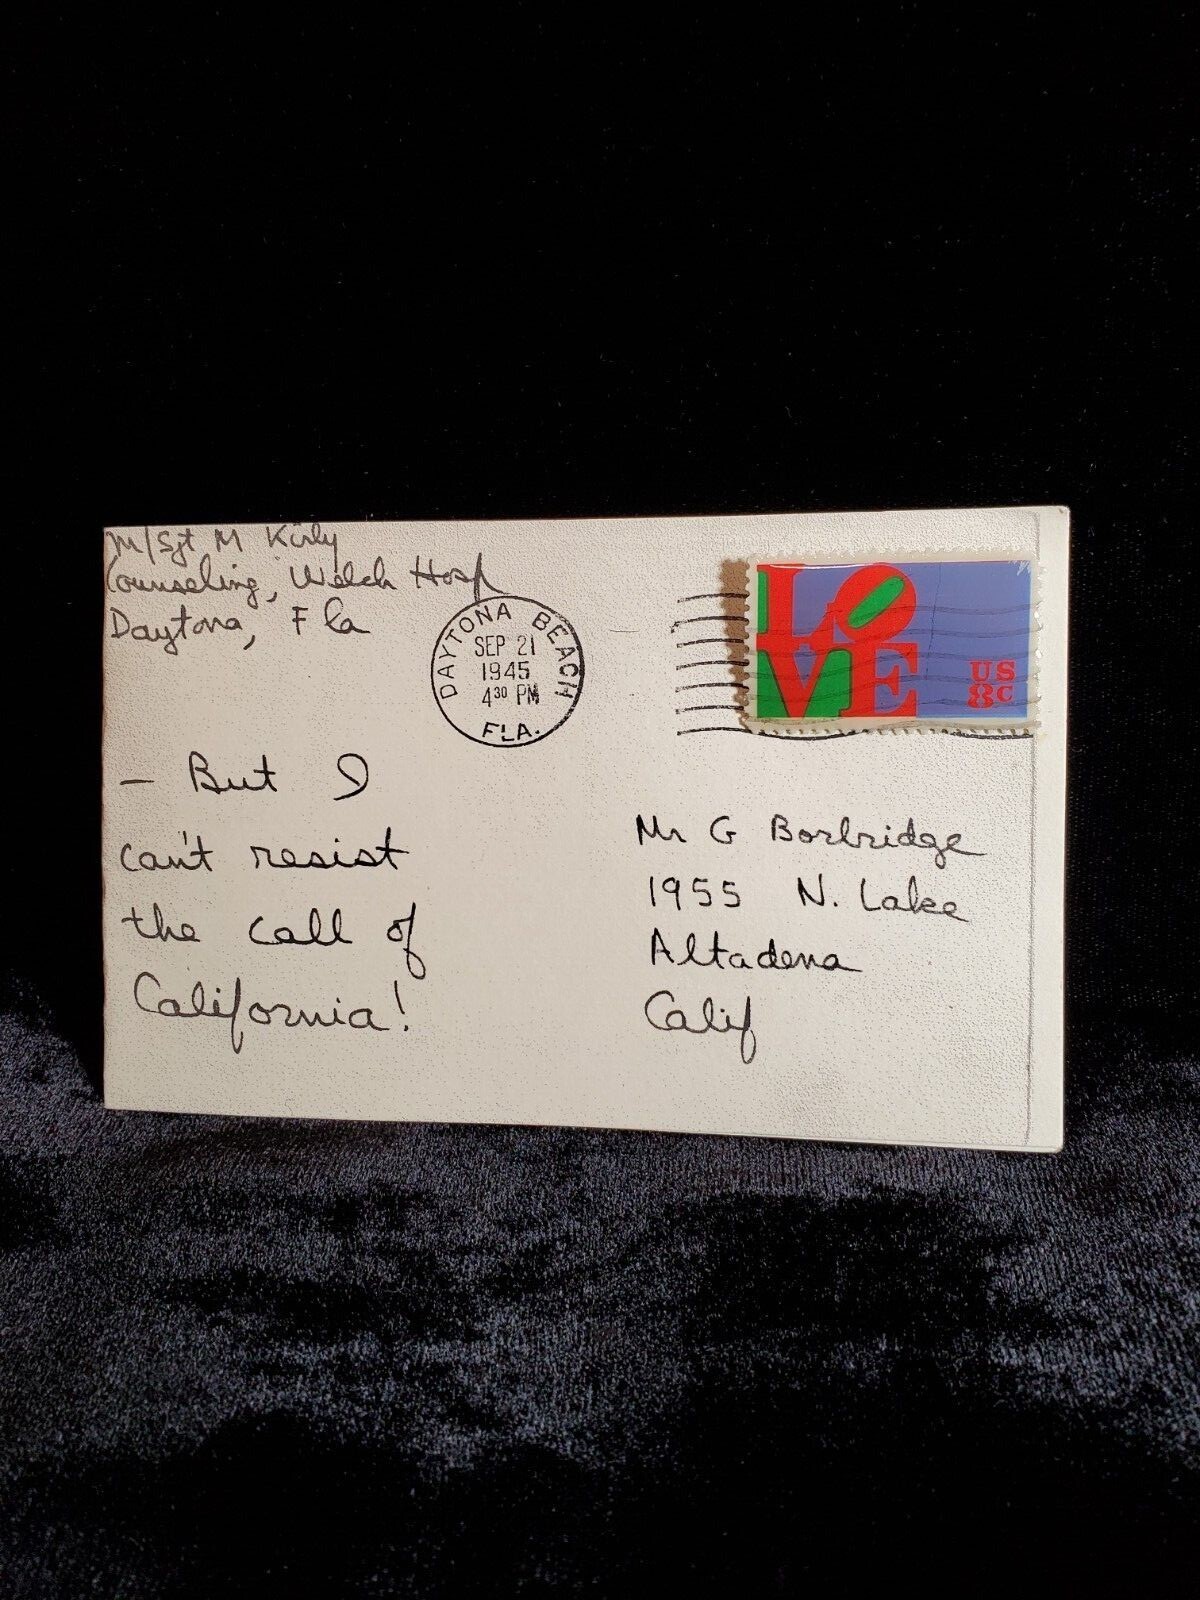 M/Sgt M Kirly
Counseling, Welch Hosp
Daytona, Fla
DAYTONA BEACH
SEP 21
1945
4 30 PM
FLA.
LOVE
US
8c
— But I
can't resist
the call of
California!
Mr G Borbridge
1955 N. Lake
Altadena
Calif